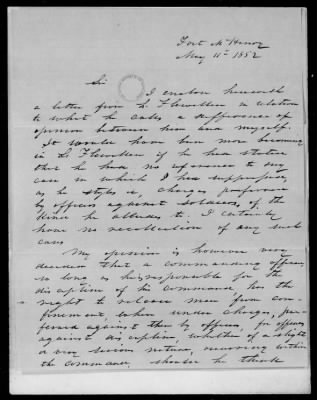 Fort McHenry
May 11th 1852
Sir
I enclose herewith
a letter from Lt Flewellen in relation
to what he calls a difference of
opinion between him and myself.
It would have been more becoming
in Lt Flewellen if he had stated
that he had no reference to any
case in which I had suppressed,
as he styles it, charges preferred
by officers against soldiers, of the
kind he alludes to, I certainly
have no recollection of any such
case
My opinion is however very
decided that a commanding officer
so long as he is responsible for the
discipline of his command, has the
right to release men from con-
finement, when under charges, pre-
ferred against them by officers, for offences
against discipline, whether of a slight
or very serious nature, occurring within
the command, should he think